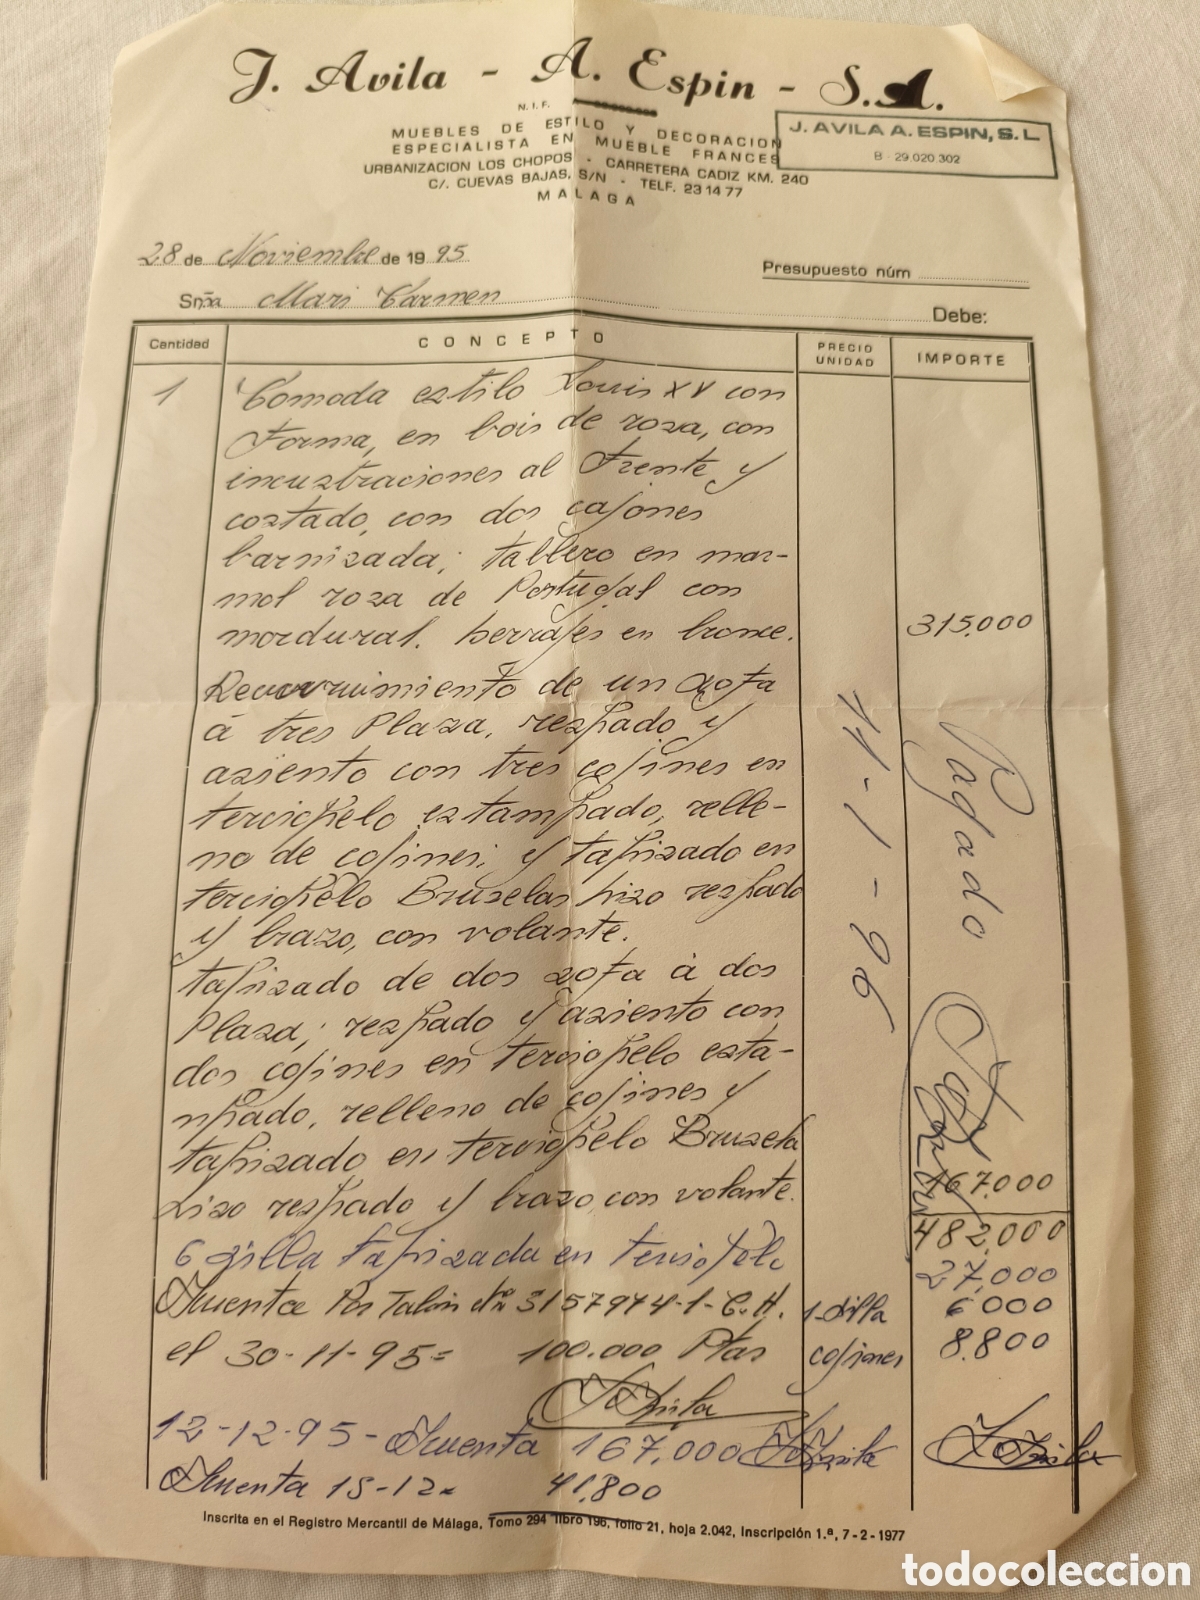 J. Avila - A. Espin - S.A.
N.I.F.
J. AVILA A. ESPIN, S.L
B - 29.020.302
MUEBLES DE ESTILO Y DECORACION
ESPECIALISTA EN MUEBLE FRANCES
URBANIZACION LOS CHOPOS - CARRETERA CADIZ KM. 240
C/. CUEVAS BAJAS, S/N - TELF. 23 14 77
MALAGA
28 de Noviembre de 1995
Presupuesto núm
Sr./Sra. Mari Carmen
Debe:
Cantidad CONCEPTO PRECIO UNIDAD IMPORTE
1 Comoda estilo Louis XV con
Forma, en bois de roza, con
incuztraciones al Frente y
coztado, con dos cajones
barnizada; tablero en mar-
mol roza de Portugal con
mordural. herrajes en bronce. 315,000
de un zofa
á tres Plaza, rezpado y
aziento con tres cojines en
terciopelo eztampado, relle-
no de cojines; y tapizado en
terciopelo Bruselas lizo rezpado
y brazo, con volante.
tapizado de dos zofa à dos
Plaza; rezpado y aziento con
dos cojines en terciopelo ezta-
mpado, relleno de cojines y
tapizado en terciopelo Bruzela
Lizo rezpado y brazo con volante. 167,000
482,000
6 zilla tapizada en terciopelo 27,000
Acuenta Por Talón Nº 3157974-1-C.H. 1-silla 6000
el 30-11-95= 100.000 Ptas cojiones 8.800
J Avila
12-12-95 - Acuenta 167,000 J Avila
J Avila
Acuenta 15-12= 41,800
Pagado
11-1-96
Inscrita en el Registro Mercantil de Málaga, Tomo 294 libro 196, folio 21, hoja 2.042, Inscripción 1.ª, 7-2-1977
todocoleccion